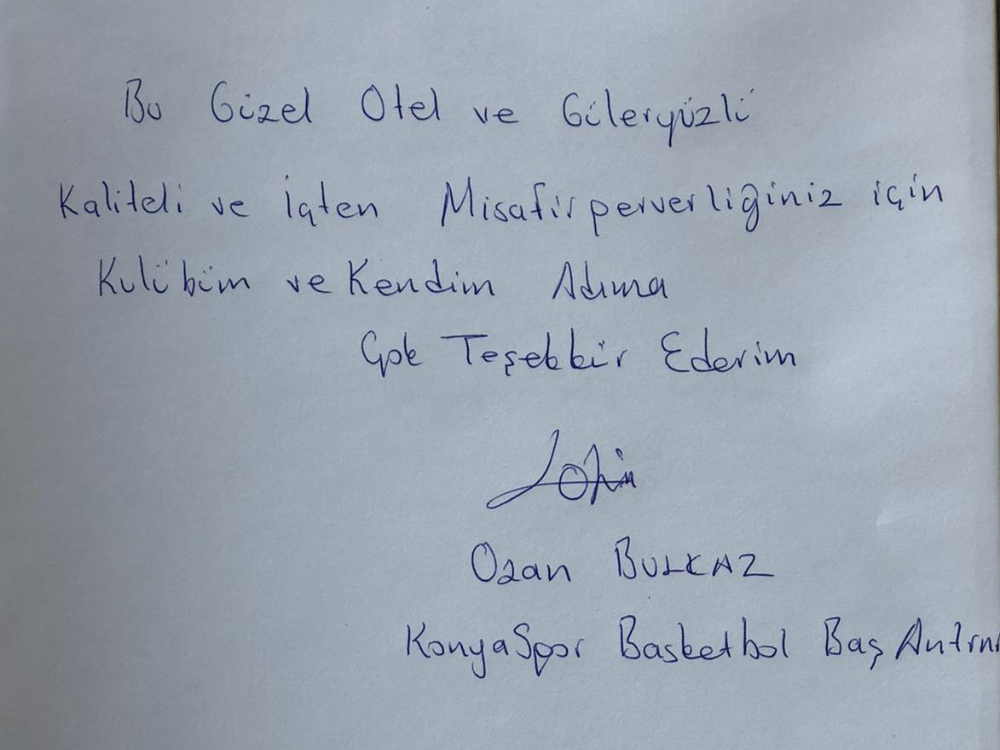 Bu Güzel Otel ve Güleryüzlü
Kaliteli ve İçten Misafirperverliğiniz için
Kulübüm ve Kendim Adıma
Çok Teşekkür Ederim
Ozan BULKAZ
KonyaSpor Basketbol Baş Antrn